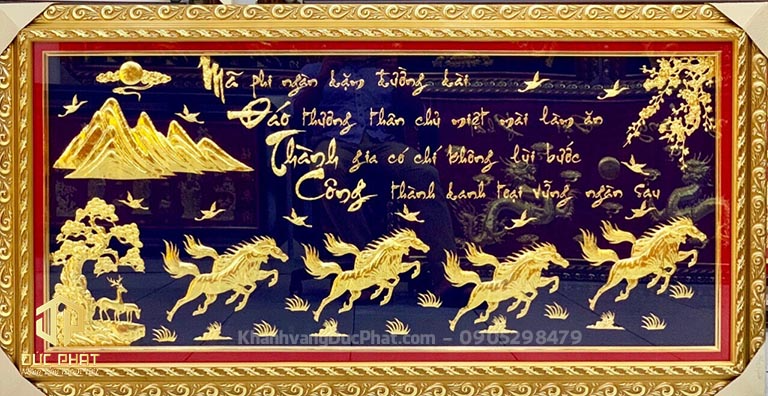 Mã phi ngàn dặm đường dài
Đáo thương thân chủ miệt mài làm ăn
Thành gia có chí không lùi bước
Công thành danh toại vững ngàn sau
KhanhvangDucPhat.com – 0905298479
ĐỨC PHÁT